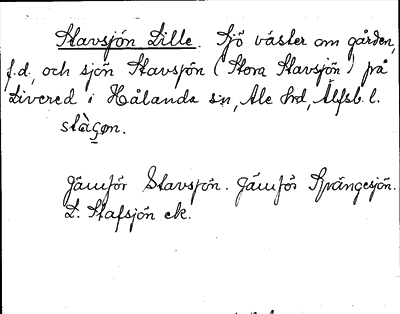 Stavsjön Lille. Sjö väster om gården,
f.d., och sjön Stavsjön (Stora Stavsjön) på
Livered i Hålanda sn, Ale hrd, Älfsb. l.
Jämför Stavsjön. Jämför Sprängesjön.
L. Stafsjön ek.